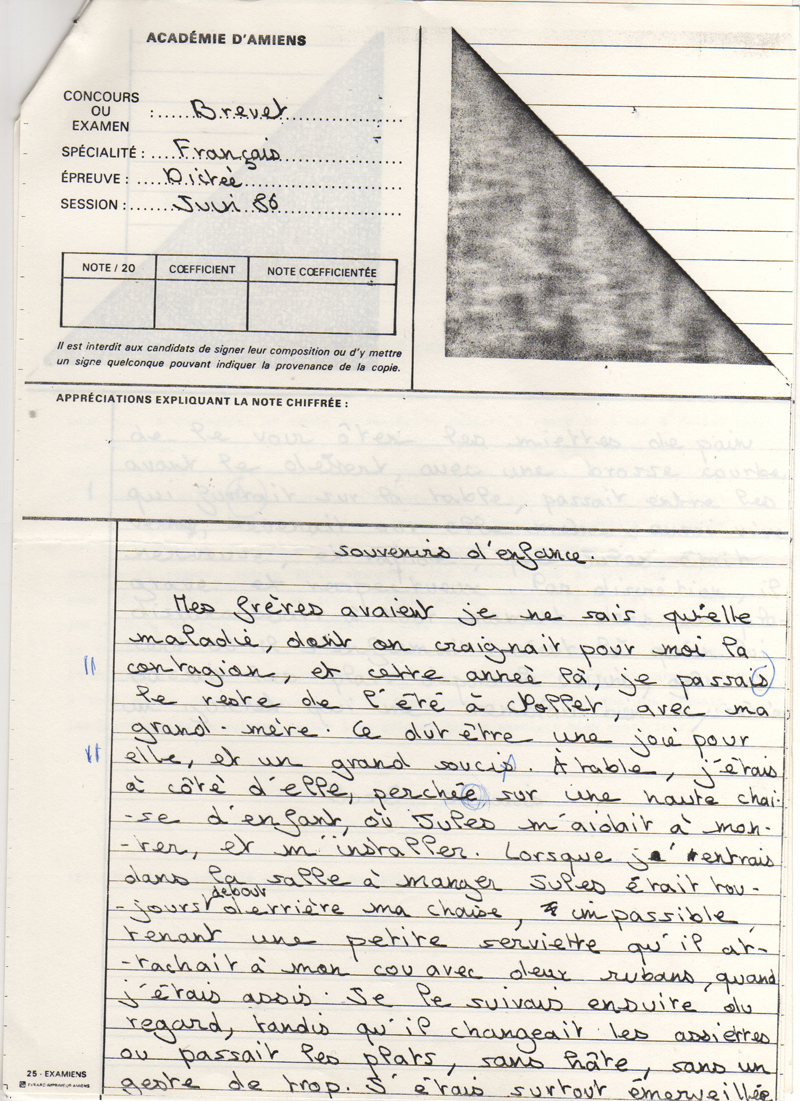 ACADÉMIE D'AMIENS
CONCOURS
OU
EXAMEN : Brevet
SPÉCIALITÉ : Français
ÉPREUVE : Dictée
SESSION : Juin 86
NOTE / 20 COEFFICIENT NOTE CŒFFICIENTÉE
Il est interdit aux candidats de signer leur composition ou d'y mettre
un signe quelconque pouvant indiquer la provenance de la copie.
APPRÉCIATIONS EXPLIQUANT LA NOTE CHIFFRÉE :
Souvenirs d'enfance.
Mes frères avaient je ne sais qu'elle
maladie, dont on craignait pour moi la
contagion, et cette année là, je passais
le reste de l'été à Chollet, avec ma
grand-mère. Ce dût être une joie pour
elle, et un grand soucis. À table, j'étais
à côté d'elle, perchée sur une haute chai-
-se d'enfant, où Jules m'aidait à mon-
-ter, et m'installer. Lorsque j' entrais
dans la salle à manger Jules était tou-
-jours debout derrière ma chaise, impassible,
tenant une petite serviette qu'il at-
-tachait à mon cou avec deux rubans, quand
j'étais assis. Je le suivais ensuite du
regard, tandis qu'il changeait les assiettes
ou passait les plats, sans hâte, sans un
geste de trop. J'étais surtout émerveillée
25 - EXAMIENS
EVRARD IMPRIMEUR AMIENS